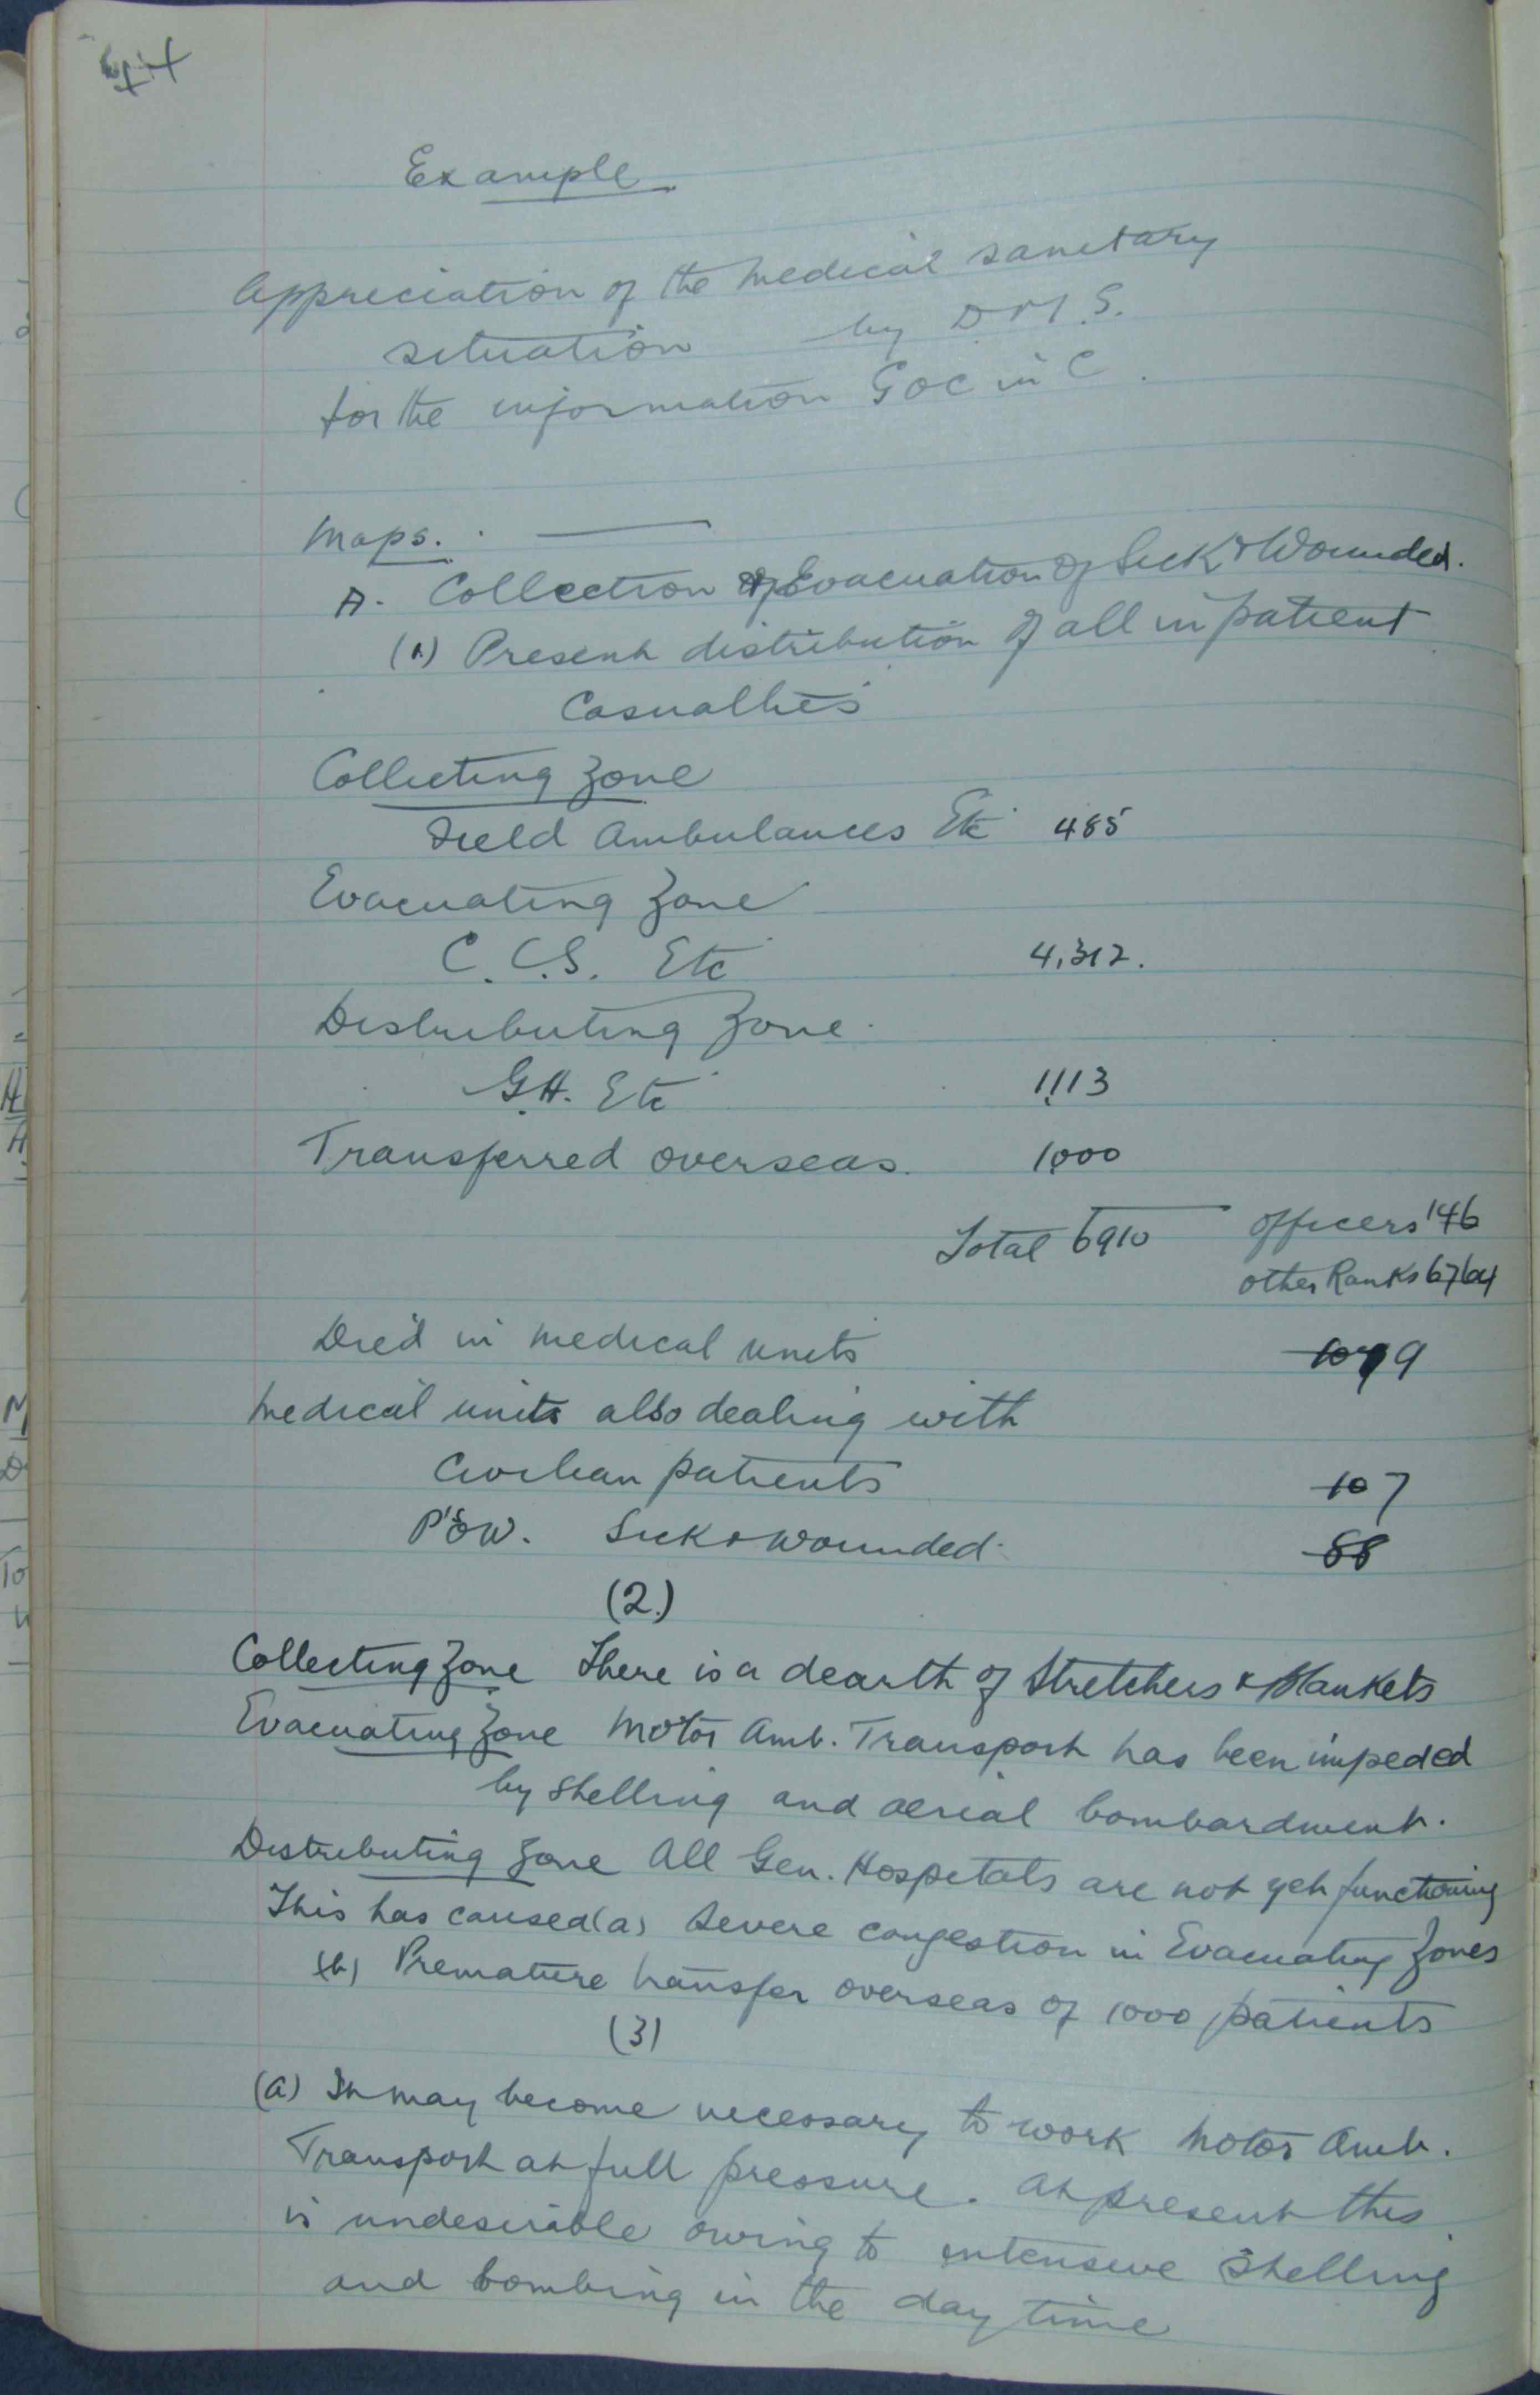 Example
Appreciation of the medical sanitary
situation by D.M.S.
for the information GOC in C.
Maps.
A. Collection & Evacuation of Sick & Wounded.
(1) Present distribution of all in patient
Casualties
Collecting Zone
Field Ambulances Etc 485
Evacuating Zone
C.C.S. Etc 4,312.
Distributing Zone.
G.H. Etc 1,113
Transferred overseas. 1,000
Total 6910 Officers 146
other Ranks 6764
Died in medical units
medical units also dealing with
Civilian patients 107
P'sOW. Sick & wounded. 88
(2.)
Collecting Zone There is a dearth of Stretchers & Blankets
Evacuating Zone Motor Amb. Transport has been impeded
by shelling and aerial bombardment.
Distributing Zone All Gen. Hospitals are not yet functioning
This has caused (a) Severe congestion in Evacuating Zones
(b) Premature transfer overseas of 1000 patients
(3)
(a) It may become necessary to work Motor Amb.
Transport at full pressure. At present this
is undesirable owing to intensive Shelling
and bombing in the day time